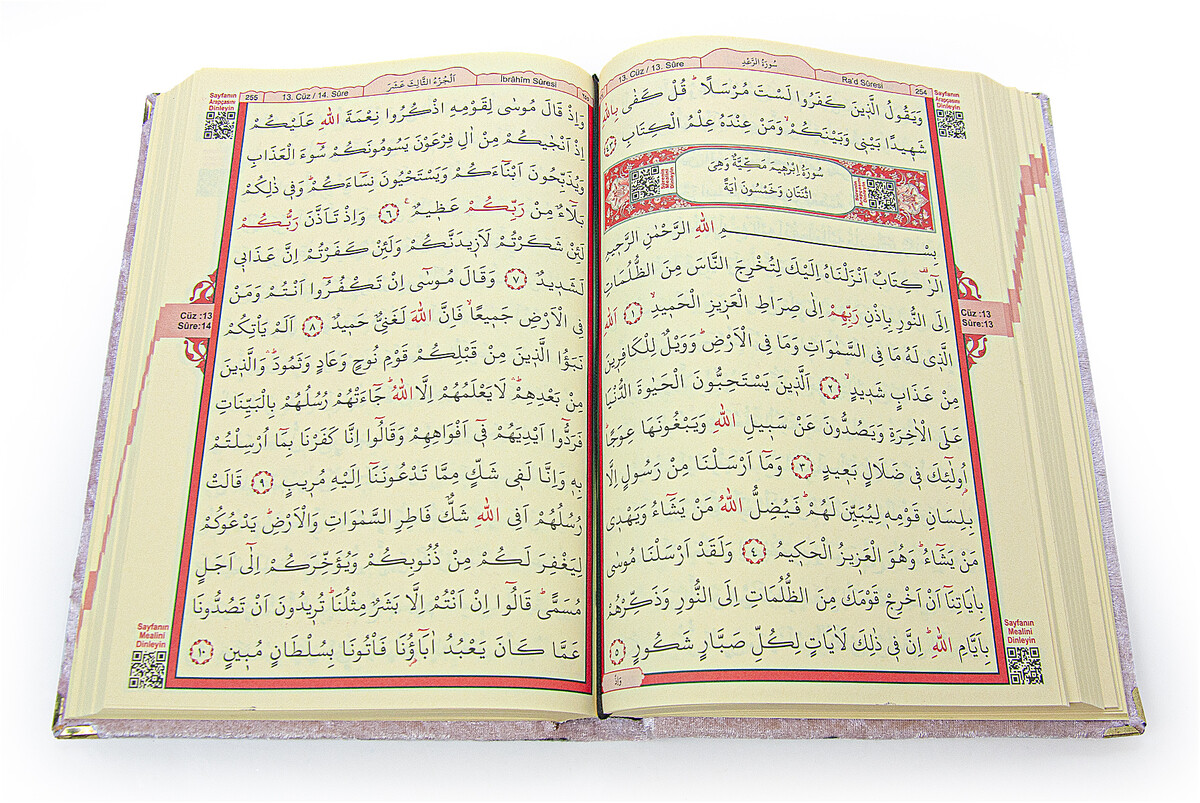 Sayfanın
Arapçasını
Dinleyin
254
Ra'd Sûresi
سُورَةُ الرَّعْدِ
13. Cüz / 13. Sûre
وَيَقُولُ الَّذ۪ينَ كَفَرُوا لَسْتَ مُرْسَلًاۜ قُلْ كَفٰى بِاللّٰهِ
شَه۪يدًا بَيْن۪ي وَبَيْنَكُمْۙ وَمَنْ عِنْدَهُ عِلْمُ الْكِتَابِ ﴿٤٣﴾
سُورَةُ اِبْرٰه۪يمَ مَكِّيَّةٌ وَهِيَ
اثْنَتَانِ وَخَمْسُونَ اٰيَةً
Sayfanın
Mealini
Dinleyin
بِسْمِ اللّٰهِ الرَّحْمٰنِ الرَّح۪يمِ
الٓرٰ۠ كِتَابٌ اَنْزَلْنَاهُ اِلَيْكَ لِتُخْرِجَ النَّاسَ مِنَ الظُّلُمَاتِ
اِلَى النُّورِ بِاِذْنِ رَبِّهِمْ اِلٰى صِرَاطِ الْعَز۪يزِ الْحَم۪يدِۙ ﴿١﴾ اَللّٰهِ
الَّذ۪ي لَهُ مَا فِي السَّمٰوَاتِ وَمَا فِي الْاَرْضِۜ وَوَيْلٌ لِلْكَافِر۪ينَ
مِنْ عَذَابٍ شَد۪يدٍۙ ﴿٢﴾ اَلَّذ۪ينَ يَسْتَحِبُّونَ الْحَيٰوةَ الدُّنْيَا
عَلَى الْاٰخِرَةِ وَيَصُدُّونَ عَنْ سَب۪يلِ اللّٰهِ وَيَبْغُونَهَا عِوَجًاۜ
اُو۬لٰٓئِكَ ف۪ي ضَلَالٍ بَع۪يدٍ ﴿٣﴾ وَمَٓا اَرْسَلْنَا مِنْ رَسُولٍ اِلَّا
بِلِسَانِ قَوْمِه۪ لِيُبَيِّنَ لَهُمْۜ فَيُضِلُّ اللّٰهُ مَنْ يَشَٓاءُ وَيَهْد۪ي
مَنْ يَشَٓاءُۜ وَهُوَ الْعَز۪يزُ الْحَك۪يمُ ﴿٤﴾ وَلَقَدْ اَرْسَلْنَا مُوسٰى
بِاٰيَاتِنَٓا اَنْ اَخْرِجْ قَوْمَكَ مِنَ الظُّلُمَاتِ اِلَى النُّورِ وَذَكِّرْهُمْ
بِاَيَّامِ اللّٰهِۜ اِنَّ ف۪ي ذٰلِكَ لَاٰيَاتٍ لِكُلِّ صَبَّارٍ شَكُورٍ ﴿٥﴾
وَاِذْ
Cüz :13
Sûre:13
Sayfanın
Mealini
Dinleyin
İbrâhîm Sûresi
اَلْجُزْءُ الثَّالِثَ عَشَرَ
13. Cüz / 14. Sûre
255
Sayfanın
Arapçasını
Dinleyin
وَاِذْ قَالَ مُوسٰى لِقَوْمِهِ اذْكُرُوا نِعْمَةَ اللّٰهِ عَلَيْكُمْ
اِذْ اَنْجٰيكُمْ مِنْ اٰلِ فِرْعَوْنَ يَسُومُونَكُمْ سُٓوءَ الْعَذَابِ
وَيُذَبِّحُونَ اَبْنَٓاءَكُمْ وَيَسْتَحْيُونَ نِسَٓاءَكُمْۜ وَف۪ي ذٰلِكُمْ
بَلَٓاءٌ مِنْ رَبِّكُمْ عَظ۪يمٌ۟ ﴿٦﴾ وَاِذْ تَاَذَّنَ رَبُّكُمْ
لَئِنْ شَكَرْتُمْ لَاَز۪يدَنَّكُمْ وَلَئِنْ كَفَرْتُمْ اِنَّ عَذَاب۪ي
لَشَد۪يدٌ ﴿٧﴾ وَقَالَ مُوسٰٓى اِنْ تَكْفُرُٓوا اَنْتُمْ وَمَنْ
فِي الْاَرْضِ جَم۪يعًاۙ فَاِنَّ اللّٰهَ لَغَنِيٌّ حَم۪يدٌ ﴿٨﴾ اَلَمْ يَأْتِكُمْ
نَبَؤُا الَّذ۪ينَ مِنْ قَبْلِكُمْ قَوْمِ نُوحٍ وَعَادٍ وَثَمُودَۜ وَالَّذ۪ينَ
مِنْ بَعْدِهِمْۜ لَا يَعْلَمُهُمْ اِلَّا اللّٰهُۜ جَٓاءَتْهُمْ رُسُلُهُمْ بِالْبَيِّنَاتِ
فَرَدُّٓوا اَيْدِيَهُمْ ف۪ٓي اَفْوَاهِهِمْ وَقَالُٓوا اِنَّا كَفَرْنَا بِمَٓا اُرْسِلْتُمْ
بِه۪ وَاِنَّا لَف۪ي شَكٍّ مِمَّا تَدْعُونَنَٓا اِلَيْهِ مُر۪يبٍ ﴿٩﴾ قَالَتْ
رُسُلُهُمْ اَفِي اللّٰهِ شَكٌّ فَاطِرِ السَّمٰوَاتِ وَالْاَرْضِۜ يَدْعُوكُمْ
لِيَغْفِرَ لَكُمْ مِنْ ذُنُوبِكُمْ وَيُؤَخِّرَكُمْ اِلٰٓى اَجَلٍ
مُسَمًّىۜ قَالُٓوا اِنْ اَنْتُمْ اِلَّا بَشَرٌ مِثْلُنَاۜ تُر۪يدُونَ اَنْ تَصُدُّونَا
عَمَّا كَانَ يَعْبُدُ اٰبَٓاؤُ۬نَا فَأْتُونَا بِسُلْطَانٍ مُب۪ينٍ ﴿١٠﴾
Cüz :13
Sûre:14
Sayfanın
Mealini
Dinleyin